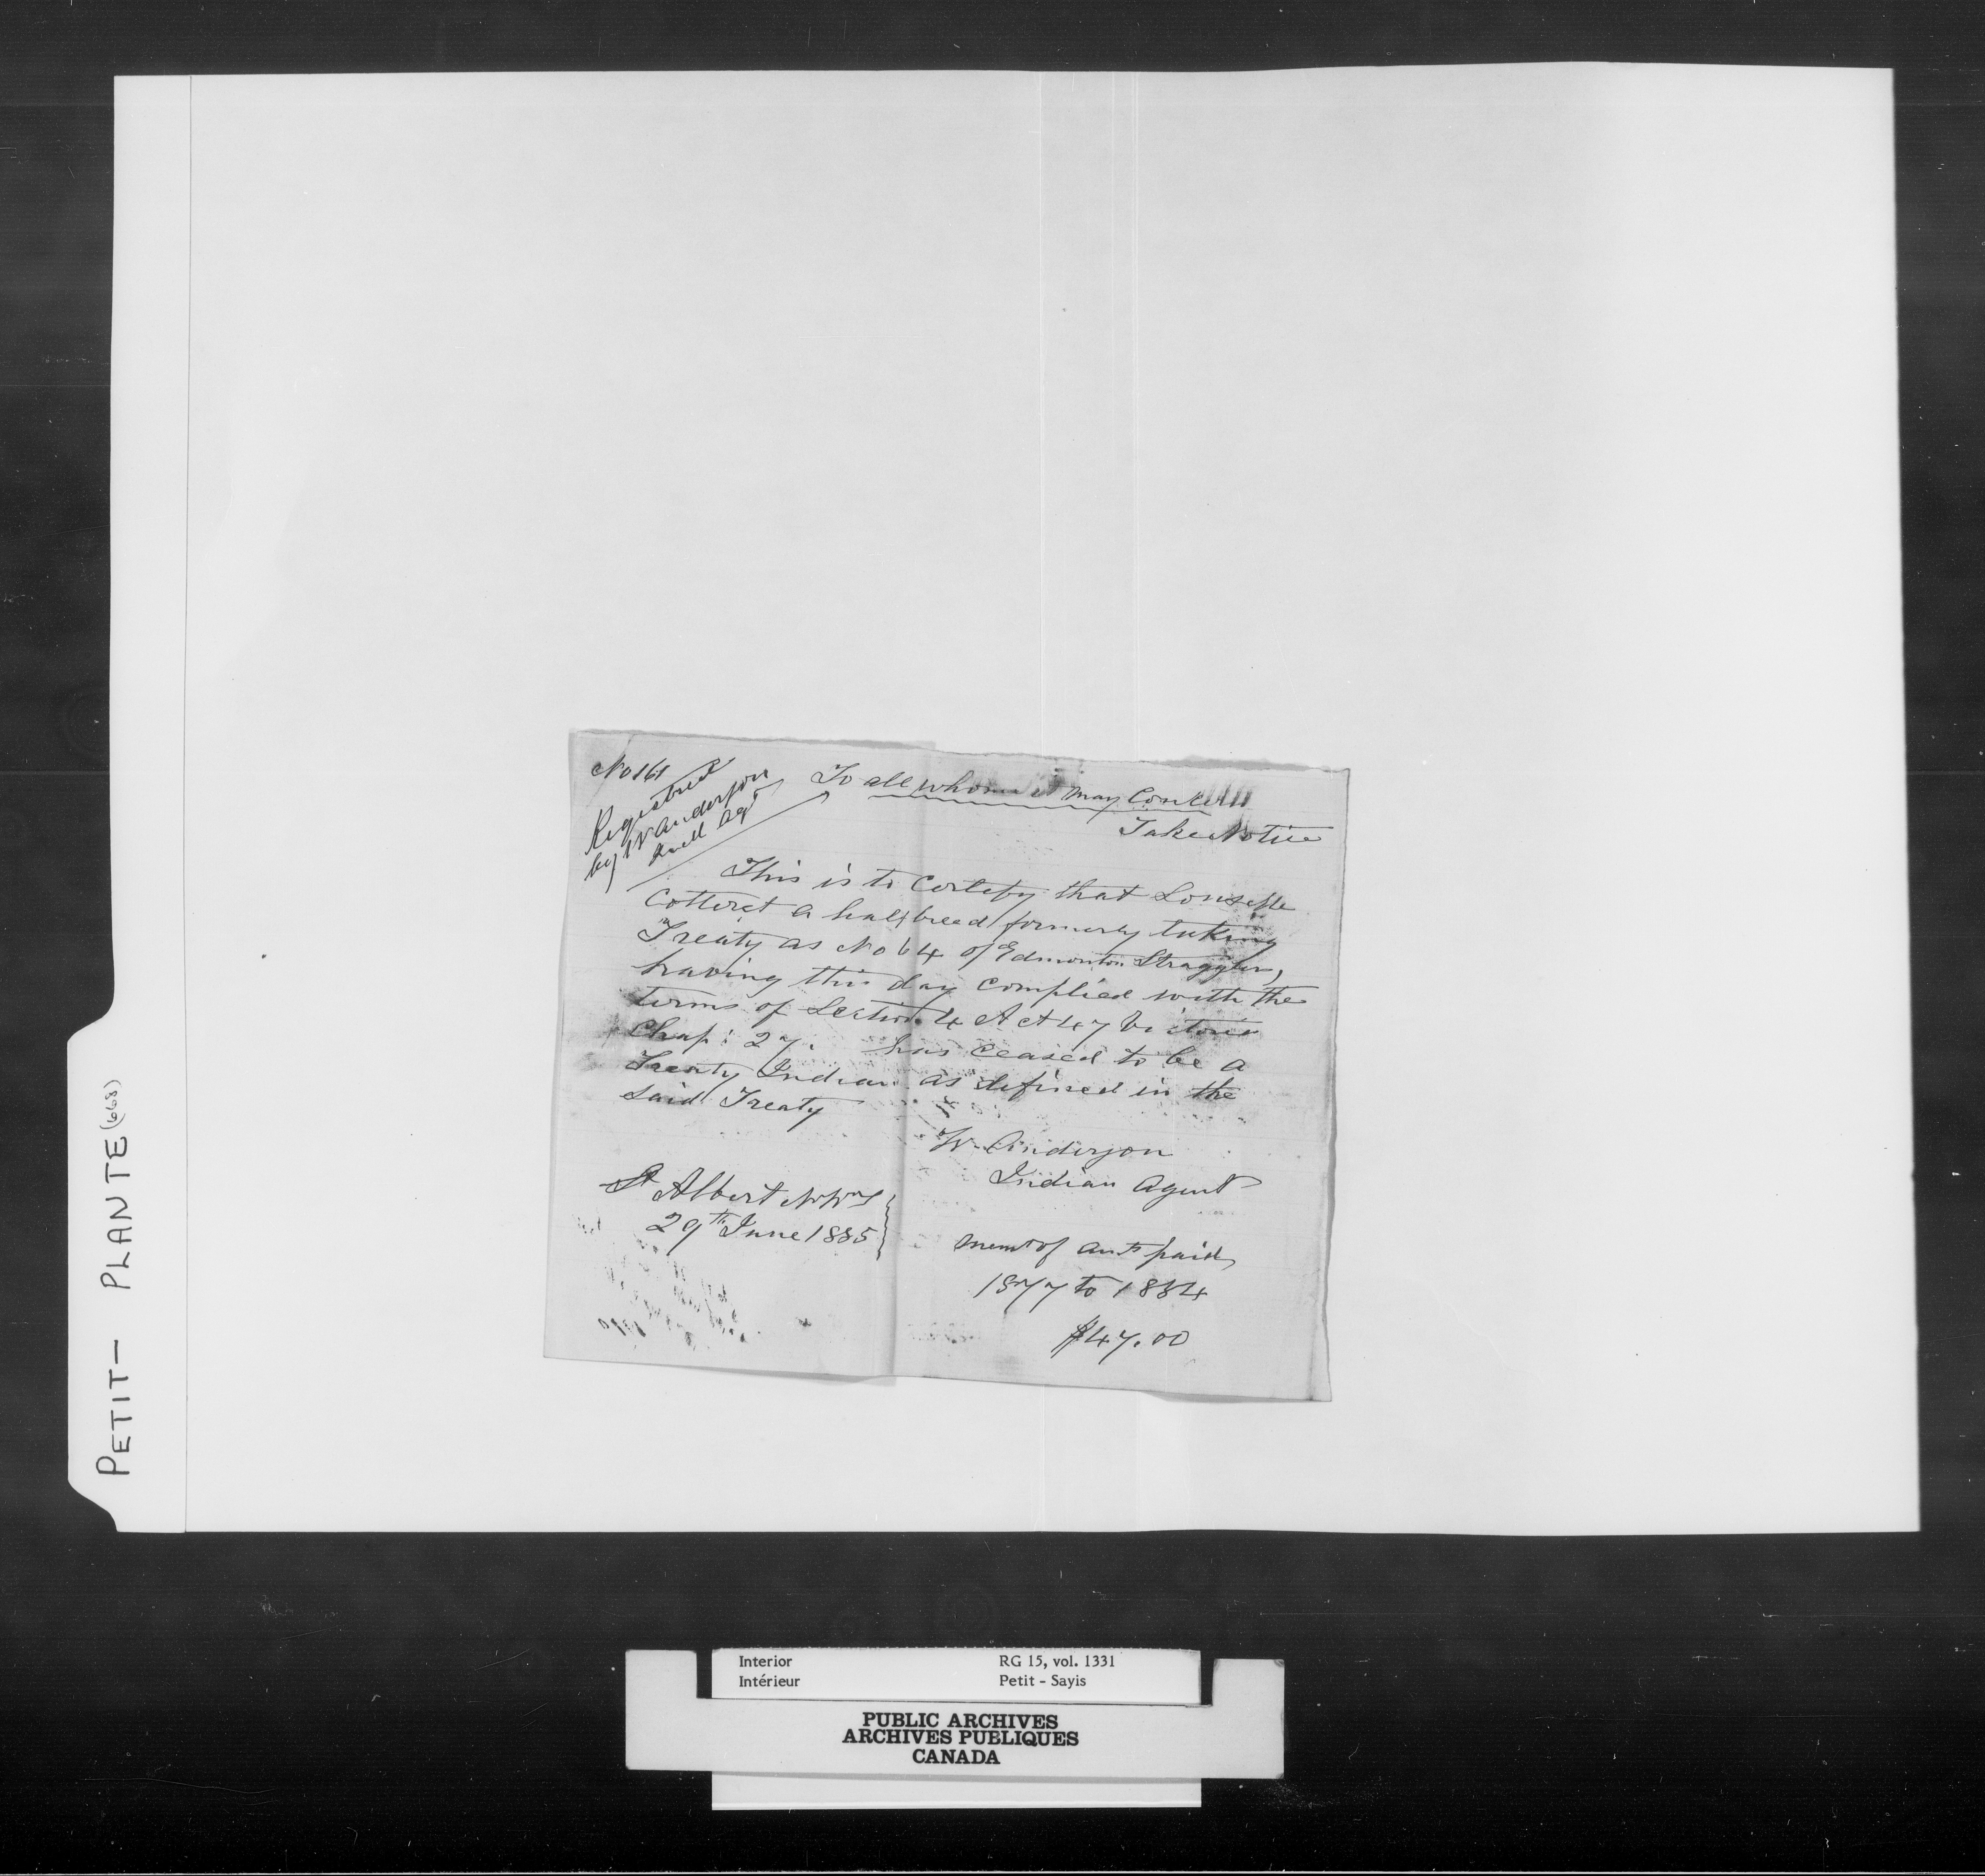 No 161
Registered
by W Anderson
Indl Agt
To all whom it may Concern
Take Notice
This is to Certify that Louselle
Cotteret a halfbreed formerly taking
Treaty as No 64 of Edmonton Stragglers,
having this day complied with the
terms of Section 4 Act 47 Victoria
Chap: 27. has ceased to be a
Treaty Indian as defined in the
said Treaty
W. Anderson
Indian Agent
St Albert NWT
29th June 1885
Memo of amts paid
1877 to 1884
$47.00
PETIT - PLANTE (668)
Interior
Intérieur
RG 15, vol. 1331
Petit - Sayis
PUBLIC ARCHIVES
ARCHIVES PUBLIQUES
CANADA